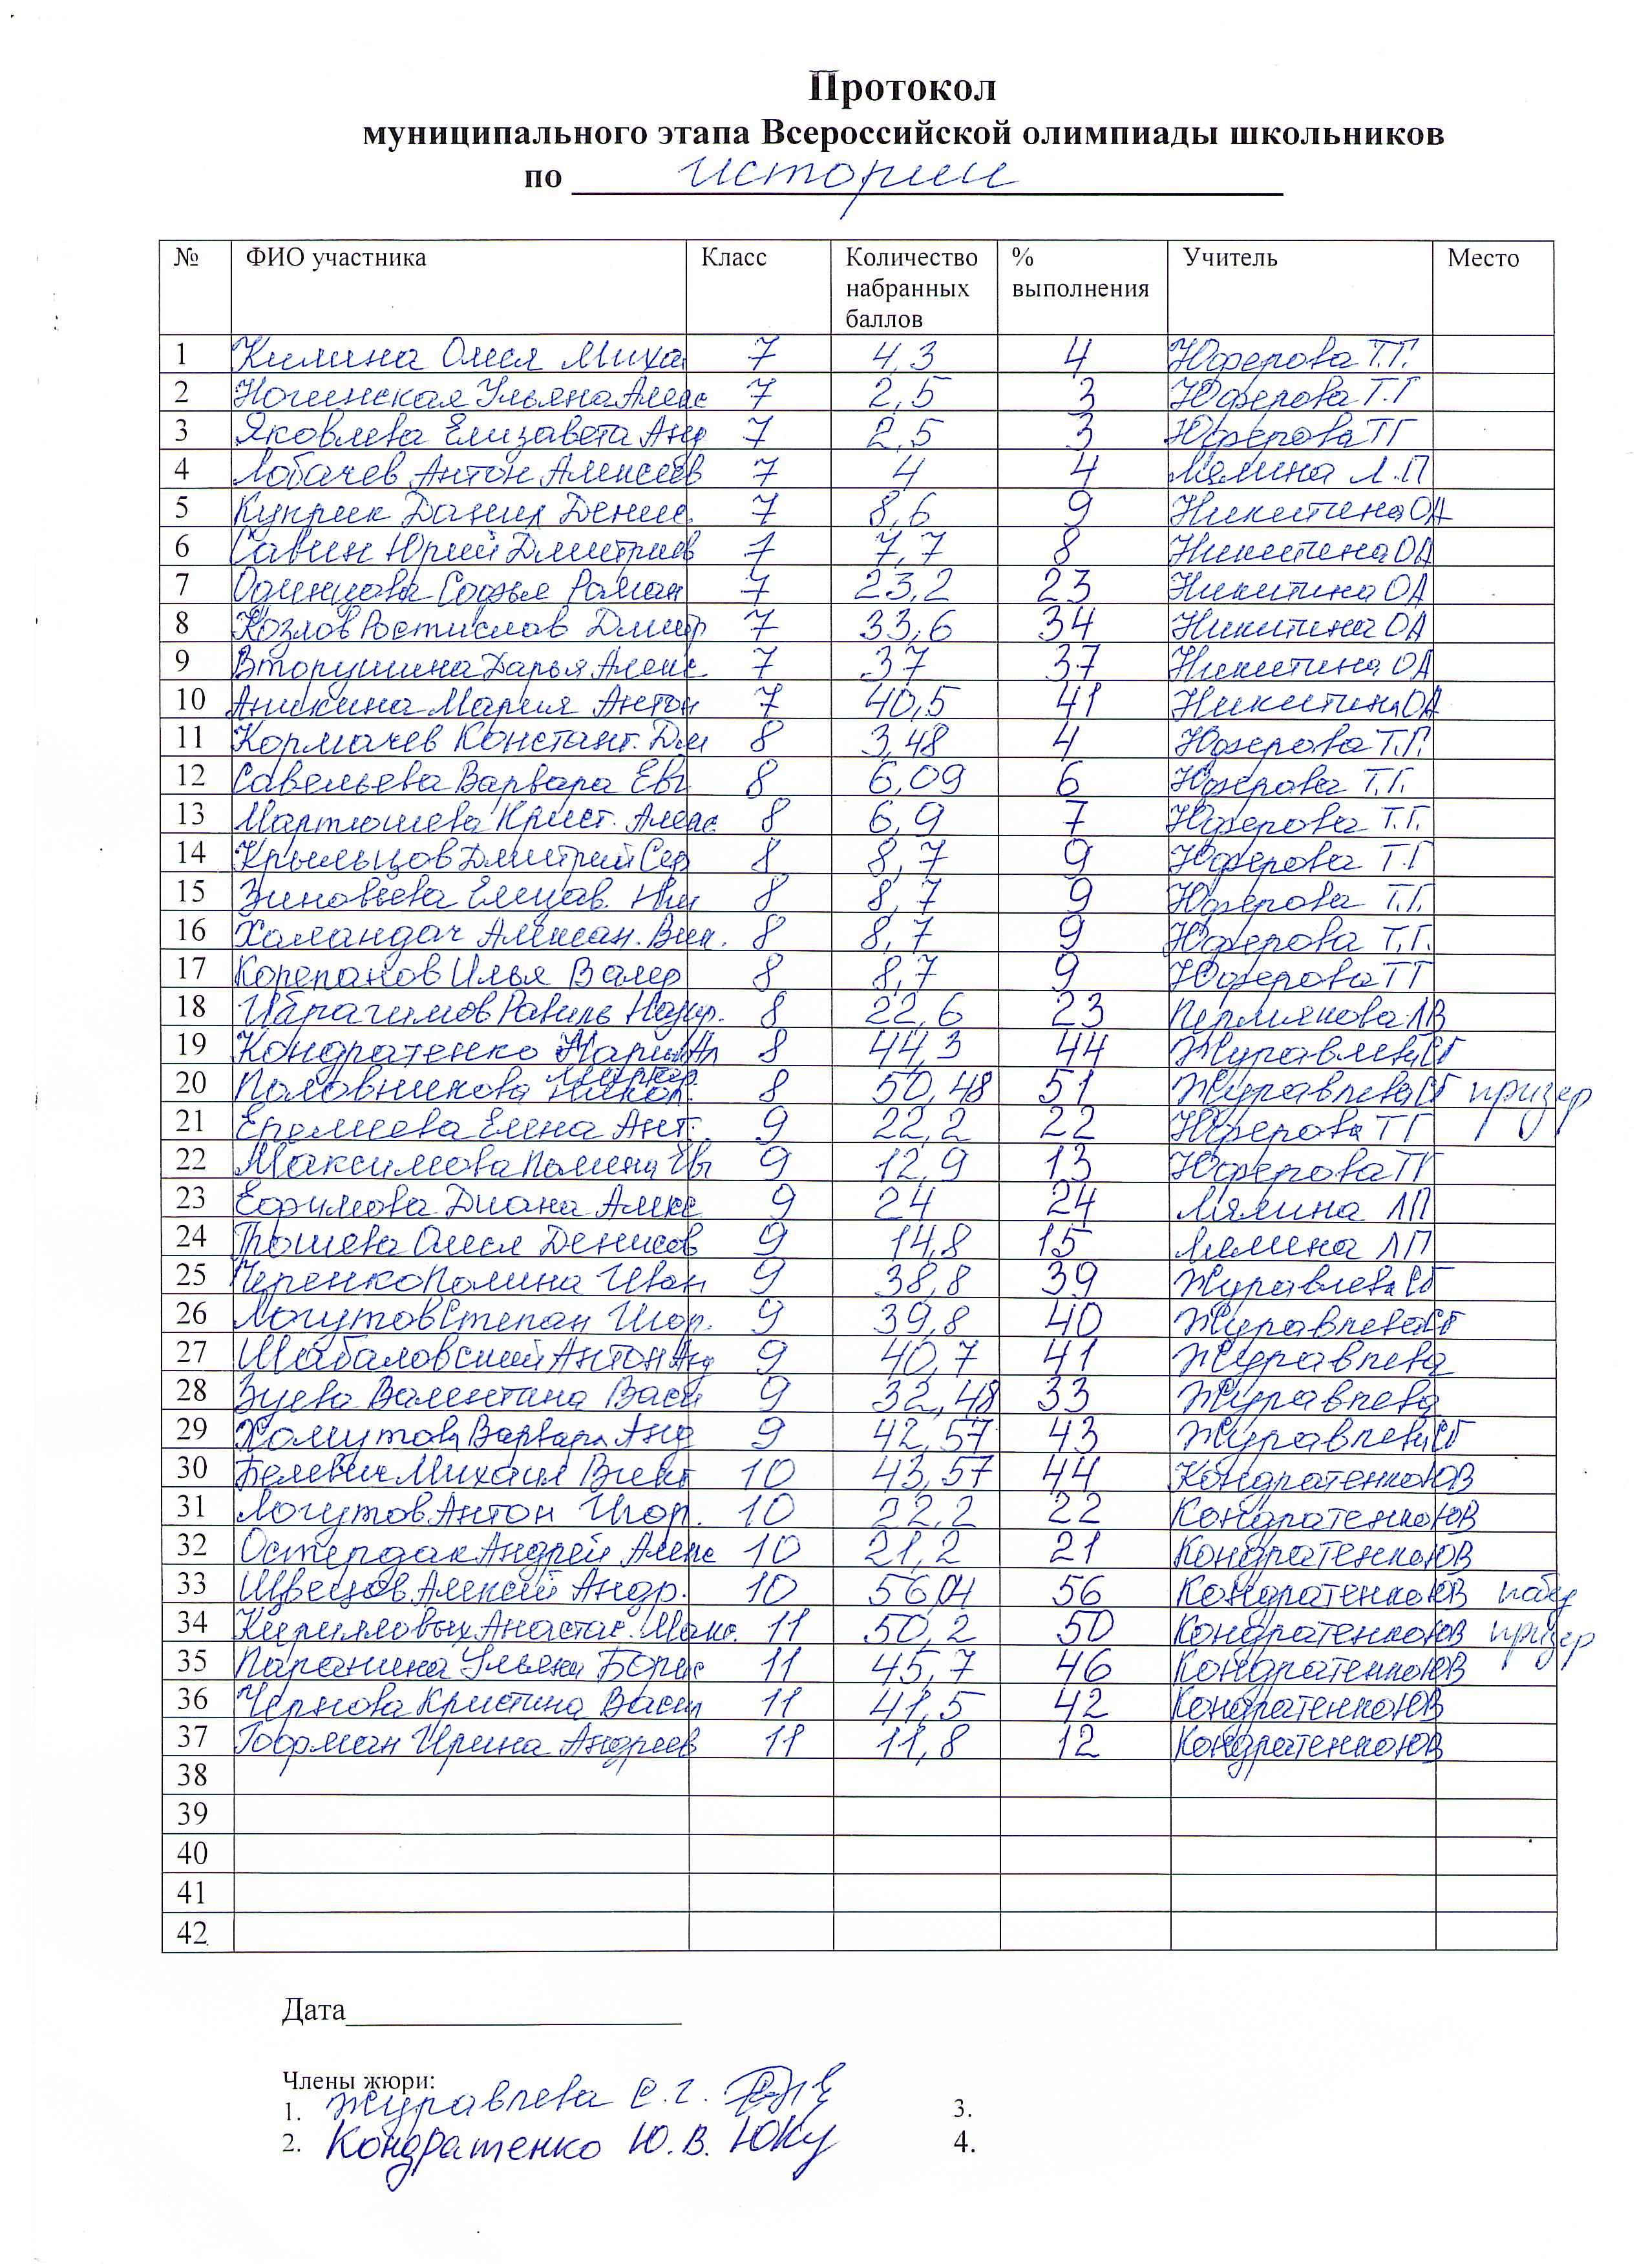 Протокол
муниципального этапа Всероссийской олимпиады школьников
по истории
№ ФИО участника Класс Количество набранных баллов % выполнения Учитель Место
1 Килина Олеся Миха 7 4,3 4 Юферова Т.Г.
2 Ногинская Ульяна Алекс 7 2,5 3 Юферова Т.Г
3 Яковлева Елизавета Анд 7 2,5 3 Юферова ТГ
4 Лобачев Антон Алексеев 7 4 4 Мялина Л.П
5 Куприк Данил Денис. 7 8,6 9 Никитина ОА
6 Савин Юрий Дмитриев 7 7,7 8 Никитина ОА
7 Одинцова Софья Роман 7 23,2 23 Никитина ОА
8 Козлов Ростислав Дмитр 7 33,6 34 Никитина ОА
9 Вторушина Дарья Алекс 7 37 37 Никитина ОА
10 Аникина Мария Антон 7 40,5 41 Никитина ОА
11 Кормачев Констант. Дм 8 3,48 4 Юферова Т.Г.
12 Савельева Варвара Евг 8 6,09 6 Юферова Т.Г.
13 Мартюшева Крист. Алекс 8 6,9 7 Юферова Т.Г.
14 Крыльцов Дмитрий Сер 8 8,7 9 Юферова Т.Г
15 Зиновьева Елизав. Ни 8 8,7 9 Юферова Т.Г.
16 Халандач Алексан. Вик. 8 8,7 9 Юферова Т.Г.
17 Корепанов Илья Валер 8 8,7 9 Юферова ТГ
18 Ибрагимов Равиль 8 22,6 23 Пермякова ЛВ
19 Кондратенко Мария Ал 8 44,3 44 Журавлева СГ
20 Половникова Никол. 8 50,48 51 Журавлева СГ призер
21 Еремеева Елена Ант. 9 22,2 22 Юферова ТГ
22 Максимова Полина Ев 9 12,9 13 Юферова ТГ
23 Ефимова Диана Алекс 9 24 24 Мялина ЛП
24 Тышева Олеся Денисов 9 14,8 15 Мялина ЛП
25 Черенко Полина Иван 9 38,8 39 Журавлева СГ
26 Логутов Степан Игор. 9 39,8 40 Журавлева СГ
27 Шабаловский Антон Анд 9 40,7 41 Журавлева
28 Зуева Валентина Васи 9 32,48 33 Журавлева
29 Хомутова Варвара Анд 9 42,57 43 Журавлева СГ
30 Белевич Михаил Викт 10 43,57 44 Кондратенко ЮВ
31 Логутов Антон Игор. 10 22,2 22 Кондратенко ЮВ
32 Остердак Андрей Алекс 10 21,2 21 Кондратенко ЮВ
33 Швецов Алексей Андр. 10 56,04 56 Кондратенко ЮВ побед
34 Кирилловых Анастас. Макс. 11 50,2 50 Кондратенко ЮВ призер
35 Паранина Ульяна Борис 11 45,7 46 Кондратенко ЮВ
36 Чернова Кристина Васил 11 41,5 42 Кондратенко ЮВ
37 Гофман Ирина Андреев 11 11,8 12 Кондратенко ЮВ
38
39
40
41
42
Дата
Члены жюри:
1. Журавлева С.Г.
2. Кондратенко Ю.В.
3.
4.